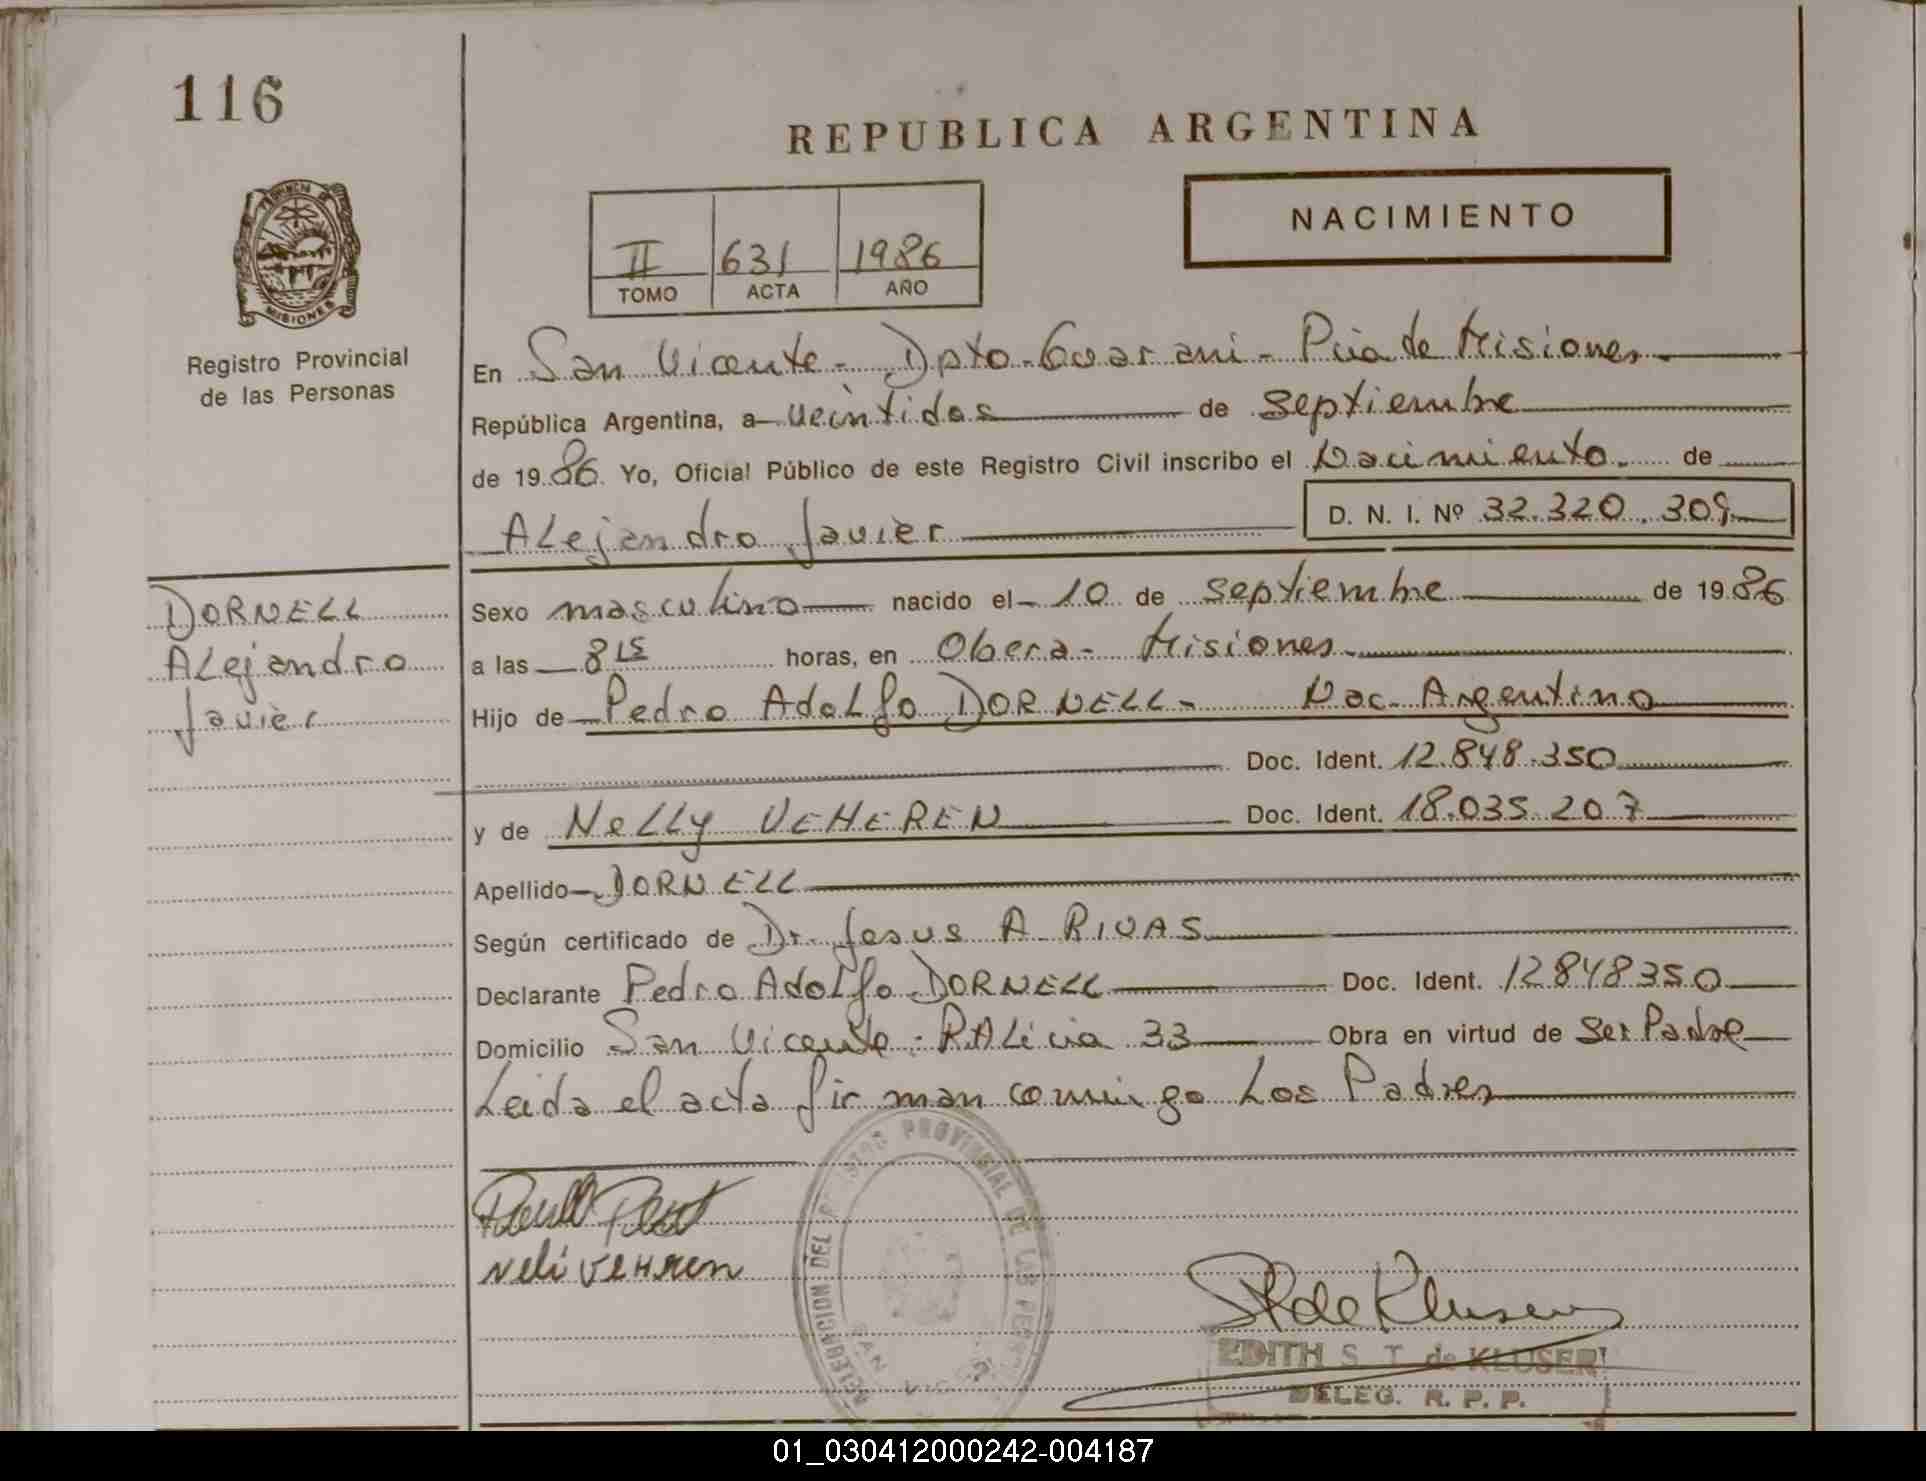 116
REPUBLICA ARGENTINA
NACIMIENTO
II 631 1986
TOMO ACTA AÑO
PROVINCIA DE
MISIONES
Registro Provincial
de las Personas
En San Vicente - Dpto. Guarani - Pcia de Misiones
República Argentina, a veintidos de septiembre
de 1986. Yo, Oficial Público de este Registro Civil inscribo el Nacimiento de
Alejandro Javier
D. N. I. Nº 32.320.309
DORNELL
Alejandro
Javier
Sexo masculino nacido el 10 de septiembre de 1986
a las 8 15 horas, en Obera - Misiones
Hijo de Pedro Adolfo DORNELL - Nac. Argentino
Doc. Ident. 12.848.350
y de Nelly VEHEREN Doc. Ident. 18.035.207
Apellido DORNELL
Según certificado de Dr. Jesus A RIVAS
Declarante Pedro Adolfo DORNELL Doc. Ident. 12848350
Domicilio San Vicente - P. Alicia 33 Obra en virtud de ser Padre
Leida el acta firman conmigo Los Padres
neli vehren
DELEGACION DEL REGISTRO PROVINCIAL DE LAS PERS
SAN VIC
S de Kluser
EDITH S. T. de KLUSER
DELEG. R. P. P.
01_030412000242-004187